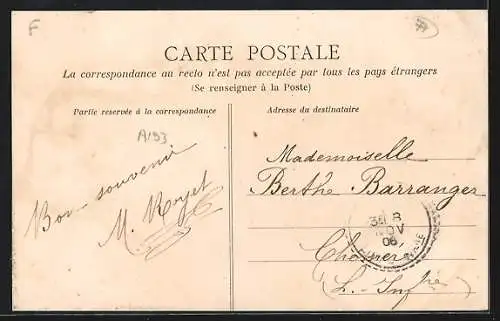 F
CARTE POSTALE
La correspondance au recto n'est pas acceptée par tous les pays étrangers
(Se renseigner à la Poste)
Partie reservée à la correspondance
Adresse du destinataire
A193
Bon souvenir
M. Royet
Mademoiselle
Berthe Barranger
8
NOV
06
(L. Infre)